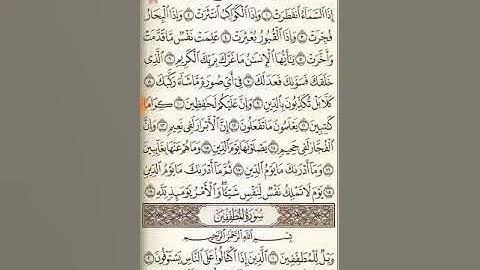 إِذَا ٱلسَّمَآءُ ٱنفَطَرَتْ ١ وَإِذَا ٱلْكَوَاكِبُ ٱنتَثَرَتْ ٢ وَإِذَا ٱلْبِحَارُ
فُجِّرَتْ ٣ وَإِذَا ٱلْقُبُورُ بُعْثِرَتْ ٤ عَلِمَتْ نَفْسٌ مَّا قَدَّمَتْ
وَأَخَّرَتْ ٥ يَٰٓأَيُّهَا ٱلْإِنسَٰنُ مَا غَرَّكَ بِرَبِّكَ ٱلْكَرِيمِ ٦ ٱلَّذِى
خَلَقَكَ فَسَوَّىٰكَ فَعَدَلَكَ ٧ فِىٓ أَىِّ صُورَةٍ مَّا شَآءَ رَكَّبَكَ ٨
كَلَّا بَلْ تُكَذِّبُونَ بِٱلدِّينِ ٩ وَإِنَّ عَلَيْكُمْ لَحَٰفِظِينَ ١٠ كِرَامًا
كَٰتِبِينَ ١١ يَعْلَمُونَ مَا تَفْعَلُونَ ١٢ إِنَّ ٱلْأَبْرَارَ لَفِى نَعِيمٍ ١٣ وَإِنَّ
ٱلْفُجَّارَ لَفِى جَحِيمٍ ١٤ يَصْلَوْنَهَا يَوْمَ ٱلدِّينِ ١٥ وَمَا هُمْ عَنْهَا بِغَآئِبِينَ
١٦ وَمَآ أَدْرَىٰكَ مَا يَوْمُ ٱلدِّينِ ١٧ ثُمَّ مَآ أَدْرَىٰكَ مَا يَوْمُ ٱلدِّينِ
١٨ يَوْمَ لَا تَمْلِكُ نَفْسٌ لِّنَفْسٍ شَيْـًٔا وَٱلْأَمْرُ يَوْمَئِذٍ لِّلَّهِ ١٩
سُورَةُ المُطَفِّفِينَ
بِسْمِ ٱللَّهِ ٱلرَّحْمَٰنِ ٱلرَّحِيمِ
وَيْلٌ لِّلْمُطَفِّفِينَ ١ ٱلَّذِينَ إِذَا ٱكْتَالُوا۟ عَلَى ٱلنَّاسِ يَسْتَوْفُونَ ٢